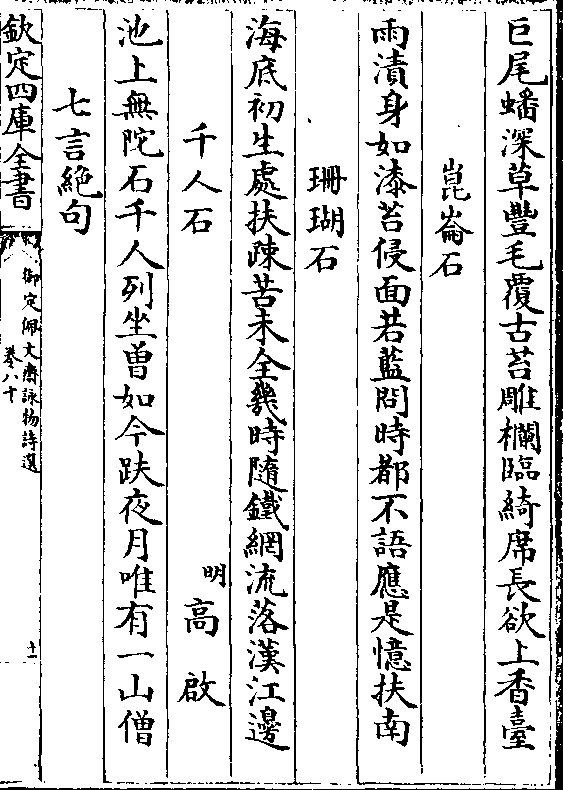 巨尾蟠深草豐毛覆古苔雕欄臨綺席長欲上香臺
崑崙石
雨漬身如漆苔侵面若藍問時都不語應是憶扶南
珊瑚石
海底初生處扶疎苦未全幾時隨鐵網流落漢江邊
千人石 明 高啟
池上無陀石千人列坐曽如今趺夜月唯有一山僧
七言絶句
欽定四庫全書
御定佩文齋詠物詩選
卷八十
十一